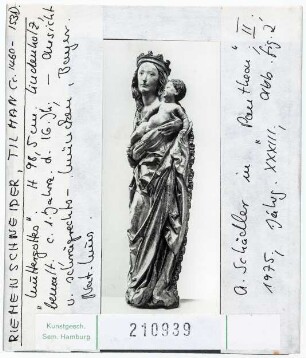 RIEMENSCHNEIDER, TILMAN C. 1460-
1531)
"Muttergottes" H 98,5 cm, Lindenholz,
bemalt. c. 1. Jahrz. d. 16. Jh., – Ansicht
v. schrägrechts – München, Bayer.
Nat. Mus.
A. Schädler in "Pantheon" II,
1975, Jahrg. XXXIII, Abb. Fig. 2,
Kunstgesch.
Sem. Hamburg
210939